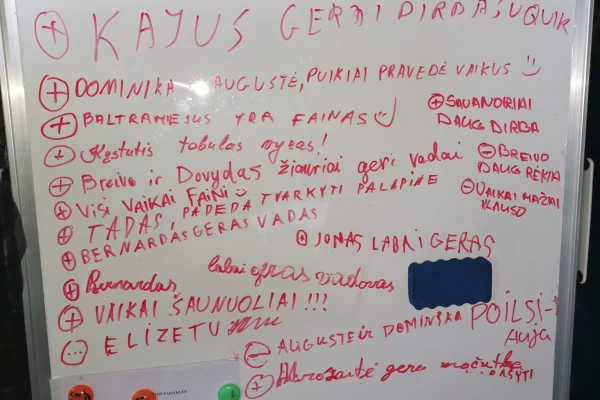 + KAJUS GERAI DIRBA SU QUIK
+ DOMINIKA IR AUGUSTĖ, PUIKIAI PRAVEDĖ VAIKUS
+ BALTRAMIEJUS YRA FAINAS
+ Kęstutis tobulas vyras!
+ Breivo ir Dovydas žiauriai geri vadai
+ VISI VAIKAI FAINI
+ TADAS, PADEDA TVARKYTI PALAPINE
+ BERNARDAS GERAS VADAS
+ SAVANORIAI
DAUG DIRBA
- BREIVO
DAUG RĖKIA
- VAIKAI MAŽAI
KLAUSO
+ JONAS LABAI GERAS
+ Bernardas labai geras vadovas
+ VAIKAI ŠAUNUOLIAI !!!
... ELIZETU
- AUGUSTE IR DOMINIKA POILSI-
auja
+ gera močiutka